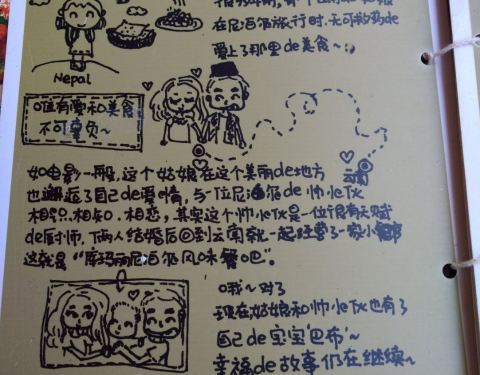 在尼泊尔旅行时,无可救药de
爱上了那里de美食~:)
Nepal
唯有爱和美食
不可辜负~
云南
如电影一般,这个姑娘在这个美丽de地方
也邂逅了自己de爱情,与一位尼泊尔de帅小伙
相识.相知.相恋,其实这个帅小伙是一位很有天赋
de厨师,俩人结婚后回到云南就一起经营了一家小餐馆
这就是“库玛丽尼泊尔风味餐吧”。
哦~对了
现在姑娘和帅小伙也有了
自己de宝宝“巴布”~
幸福de故事仍在继续~